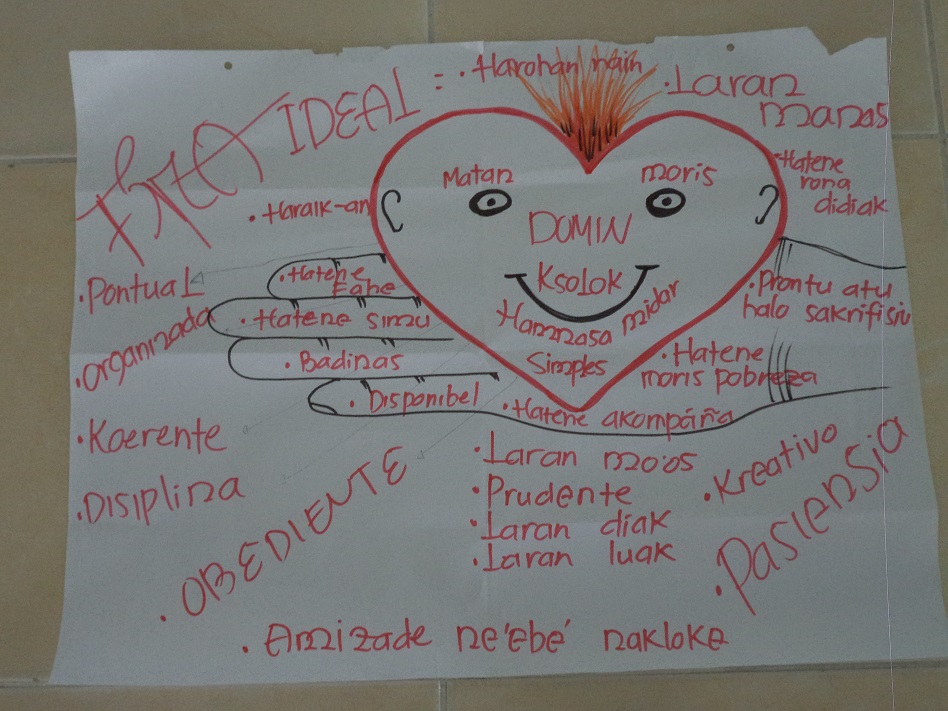 IDEAL =
• Harohan nain
• Laran
manas
• Hatene
rona
didiak
• Haraik-an
Matan moris
DOMIN
Ksolok
Hamnasa midar
Simples
• Pontual
• Organizada
• Koerente
• Disiplina
• OBEDIENTE
• Hatene
Fahe
• Hatene simu
• Badinas
• Disponibel
• Prontu atu
halo sakrifisiu
• Hatene
moris pobreza
• Hatene akompáña
• Laran mo'os
• Prudente
• Laran diak
• Laran luak
• Kreativo
• Pasiensia
• Amizade ne'ebé nakloke